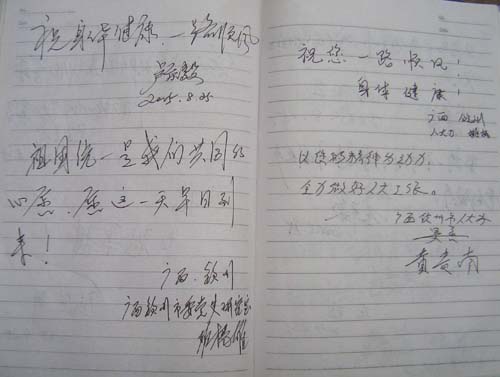 祝身体健康,一路顺风
2005.8.25
祖国统一是我们共同的
心愿,愿这一天早日到
来!
广西·钦州
广西钦州市委党史研究室
祝您一路顺风!
身体健康!
广西钦州
人大办
以您的精神为动力,
全力做好人大工作。
广西钦州市人大办